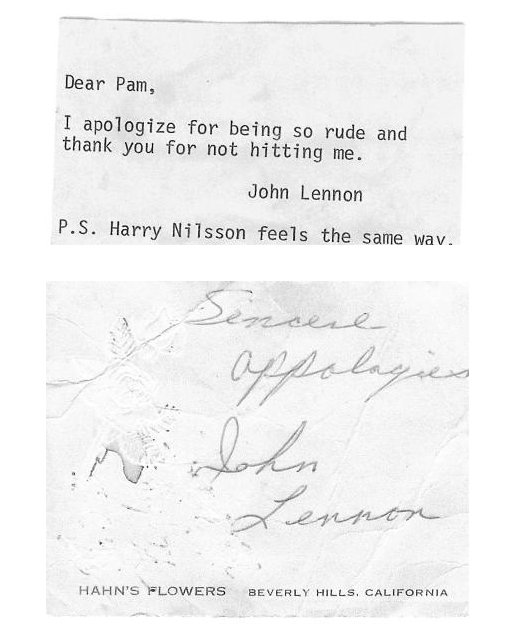 Dear Pam,
I apologize for being so rude and
thank you for not hitting me.
John Lennon
P.S. Harry Nilsson feels the same way.
Sincere
Appologies
John
Lennon
HAHN'S FLOWERS BEVERLY HILLS, CALIFORNIA